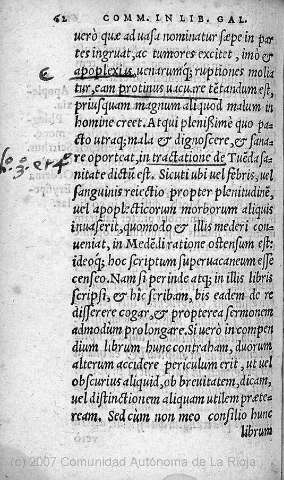 62 COMM. IN LIB. GAL.
uerò quæ ad uasa nominatur sæpe in par
tes ingruat, ac tumores excitet, imò &
apoplexias, uenarumq; ruptiones molia
tur, eam protinus uacuare tētandum est,
priusquam magnum aliquod malum in
homine creet. Atqui plenißimè quo pa-
cto utraq; mala & dignoscere, & sana-
re oporteat, in tractatione de Tuēda sa-
nitate dictū est. Sicuti ubi uel febris, uel
sanguinis reiectio propter plenitudinē,
uel apoplecticorum morborum aliquis
inuaserit, quomodo & illis mederi con-
ueniat, in Medēdi ratione ostensum est:
ideoq; hoc scriptum superuacaneum esse
censeo. Nam si perinde atq; in illis libris
scripsi, & hic scribam, bis eadem de re
disserere cogar, & propterea sermonem
admodum prolongare. Si uerò in compen
dium librum hunc contraham, duorum
alterum accidere periculum erit, ut uel
obscurius aliquid, ob breuitatem, dicam,
uel distinctionem aliquam utilem præte-
ream. Sed cùm non meo consilio hunc
librum
(c) 2007 Comunidad Autónoma de La Rioja